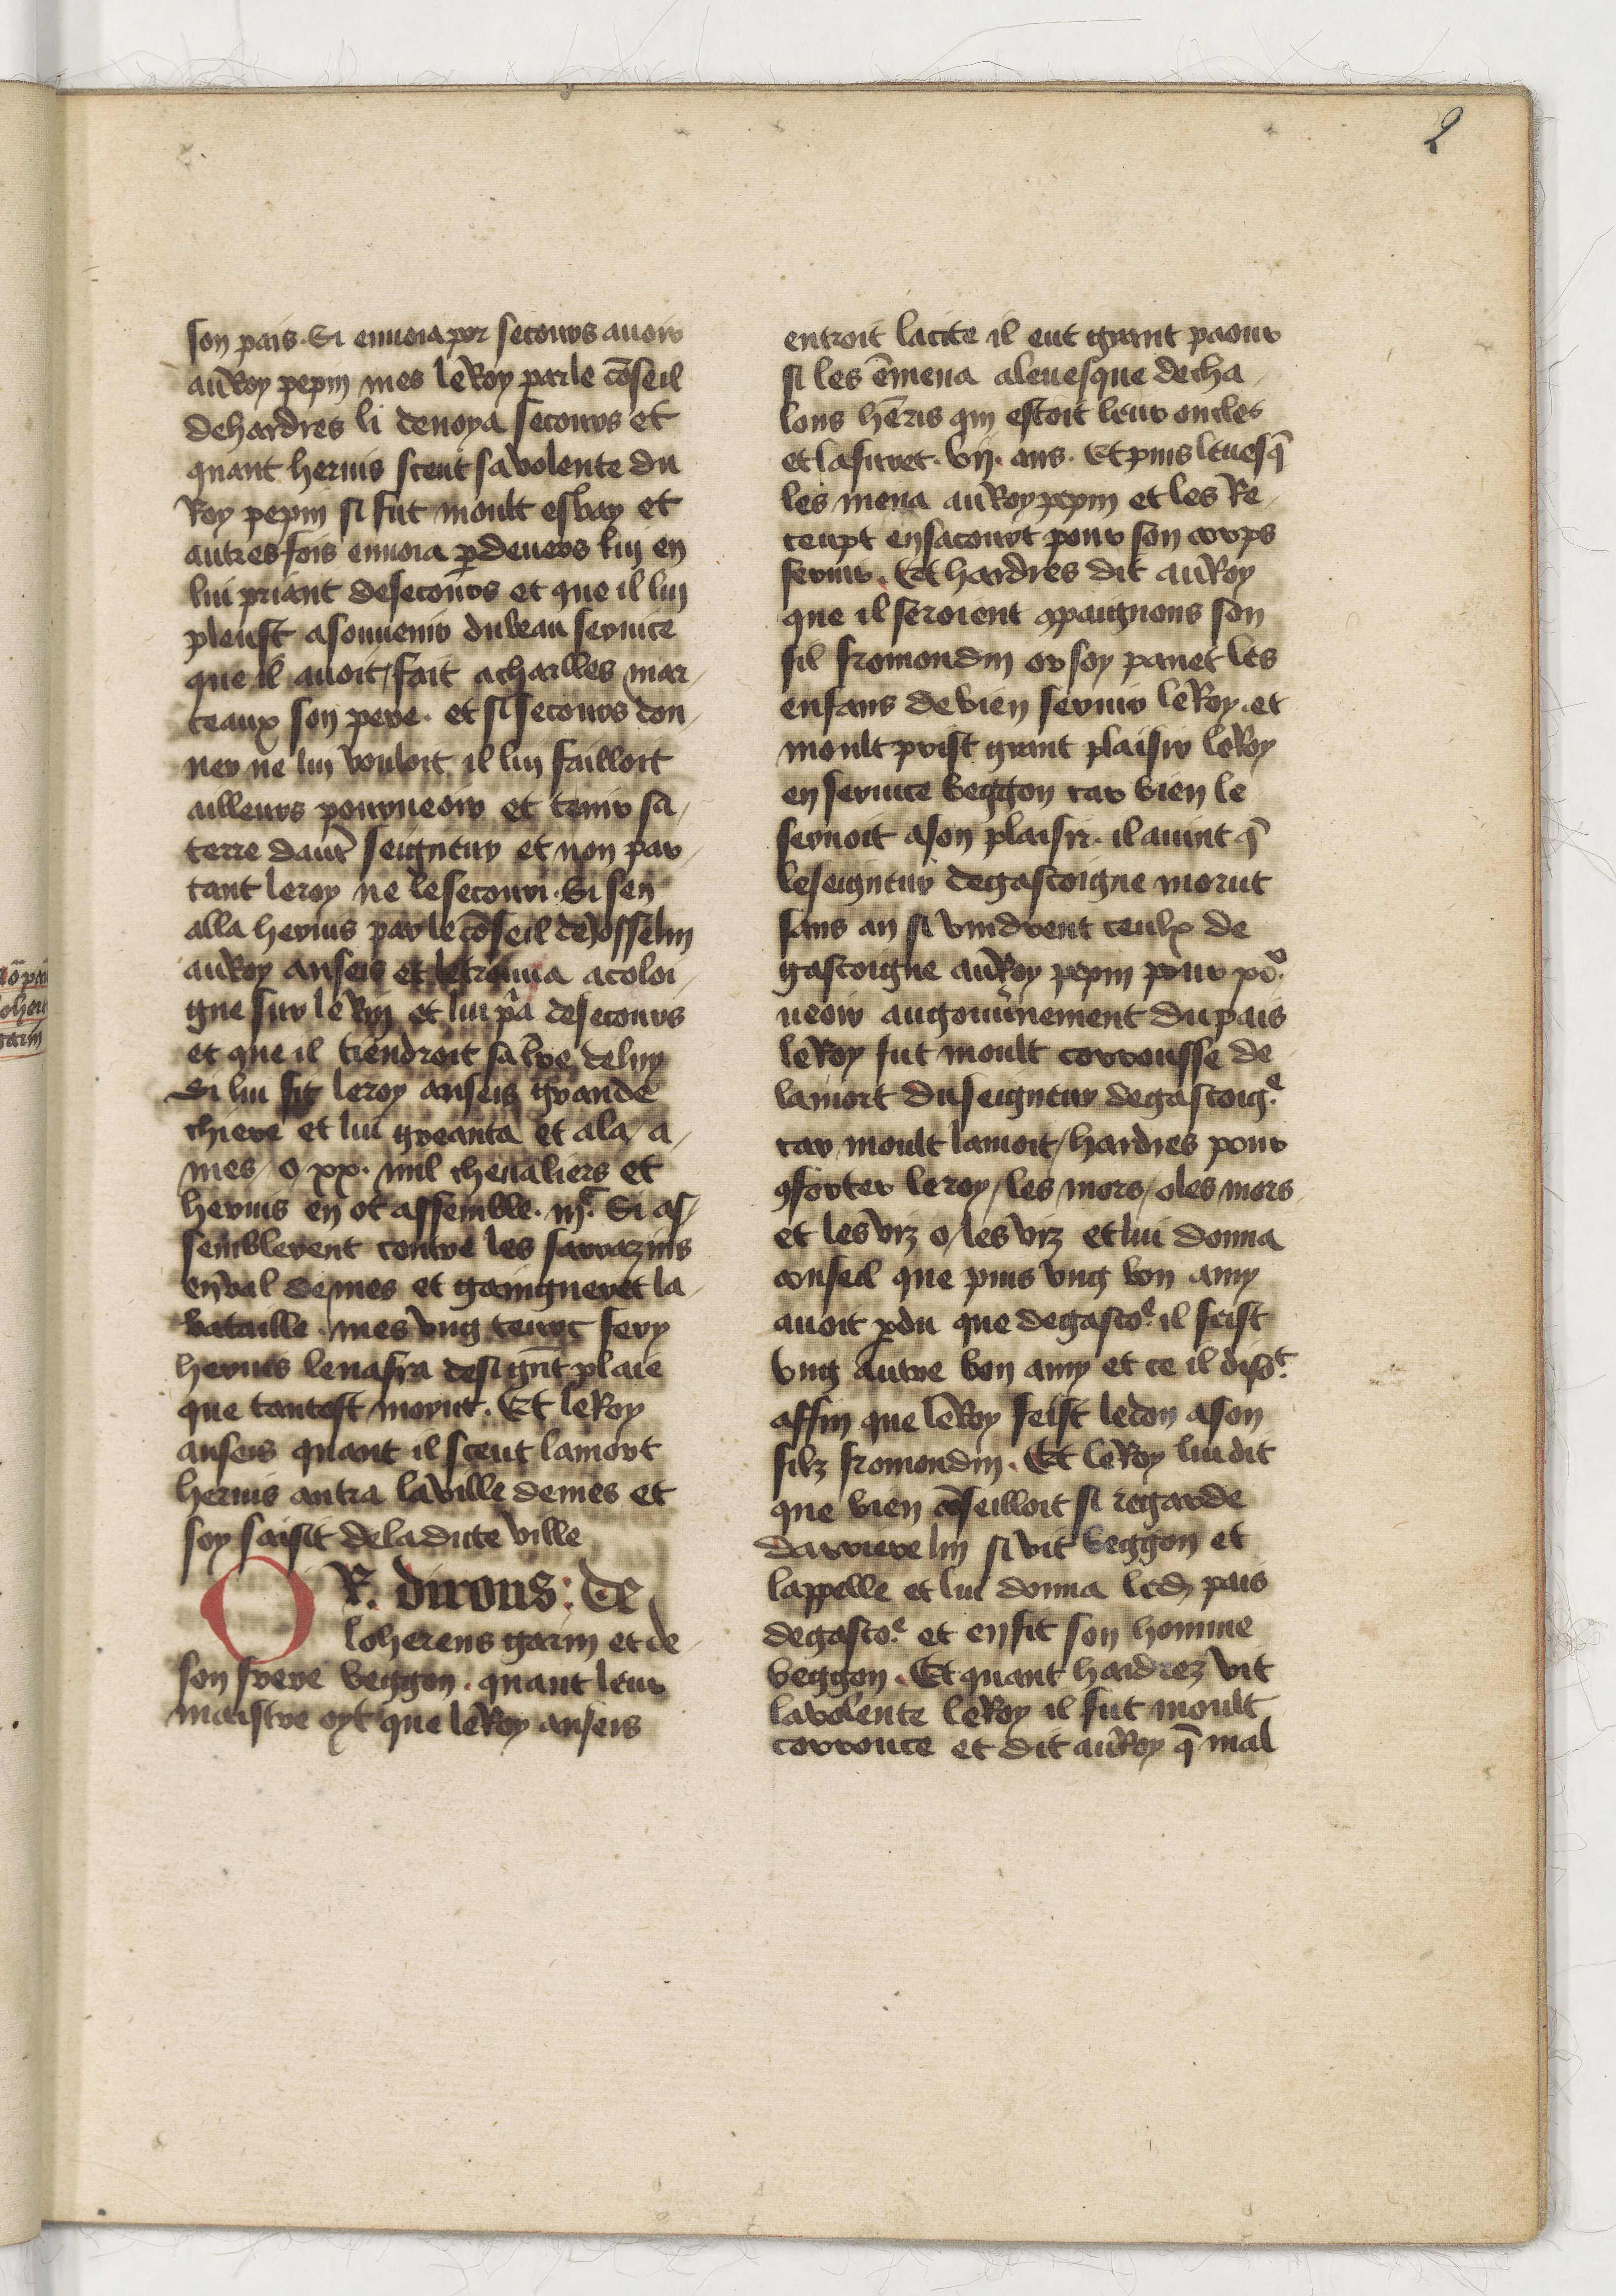 2
son pais. Si enuoia por secours auoir
au Roy pepin mes le Roy par le cōseil
de hardres li denoya secours et
quant heruis sceut sa volente du
Roy pepin si fut moult esbay et
autres fois enuoia ꝑdeuers luy en
lui priant de secours et que il luy
pleust a souuenir du beau seruice
que il auoit / fait a charlles mar-
teaux son pere. et si secours don-
ner ne luy vouloit il luy failloit
ailleurs pourueoir et tenir sa-
terre dautr̄ seigneur et non par-
tant le roy ne le secouri. Si sen
alla heruis par le cōseil de Josselin
au Roy anseis et le trouua a coloi-
gne sur le Rin et lui pͥa de secours
et que il tiendroit sa tr̄e de luy
Si lui fit le roy anseis grande
chiere et lui greanta et ala a-
mes / o / xx. mil cheualiers et
heruis en ot assemble. iijͨ. Si as-
semblerent contre les sarrazins
en val de mes et gaingneret la-
bataille. mes vng turc fery
heruis le nafra de si grāt plaie
que tantost morut. Et le Roy
anseis quant il sceut la mort
heruis antra la ville de mes et
soy saisit de la dicte ville
OR. dirons: de
loherens garin et de-
son frere beggon. quant leur
maistre oyt que le Roy anseis
entroit la cite il eut grant paour
si les ēmena a leuesque de cha-
lons hēris qui estoit leur oncles
et la furet. vij. ans. Et puis leuesq̄
les mena au Roy pepin et les Re-
ceupt en sa court pour son corps
seruir. Et hardres dit au Roy
que il seroient ꝯpaignons son
fil fromondin or soy panet les
enfans de bien seruir le Roy. et
moult prist grant plaisir le Roy
en seruice beggon car bien le
seruoit a son plaisir. il auint q̄
le seigneur de gascoigne morut
sans an si vindrent ceulx de
gascoigne au Roy pepin pour poͦ.
ueoir au gouūnement du pais
le Roy fut moult corrousse de-
la mort du seigneur de gascoigͤ.
car moult lamoit / hardres pour
ꝯforter le roy / les mors / o les mors
et les viz o / les viz et lui donna
conseil que puis vng bon amy
auoit ꝑdu que de gascoͤ. il feist
vng autre bon amy et ce il disoͭ.
affin que le Roy feist le don a son
filz fromondin. Et le Roy lui dit
que bien ꝯseilloit si regarde
darriere luy si vit beggon et
lappelle et lui donna led. pais
de gascoͤ. et en fit son homme
beggon. Et quant hardrez vit
la volente le Roy il fut moult
corrouce et dit au Roy q̄ mal